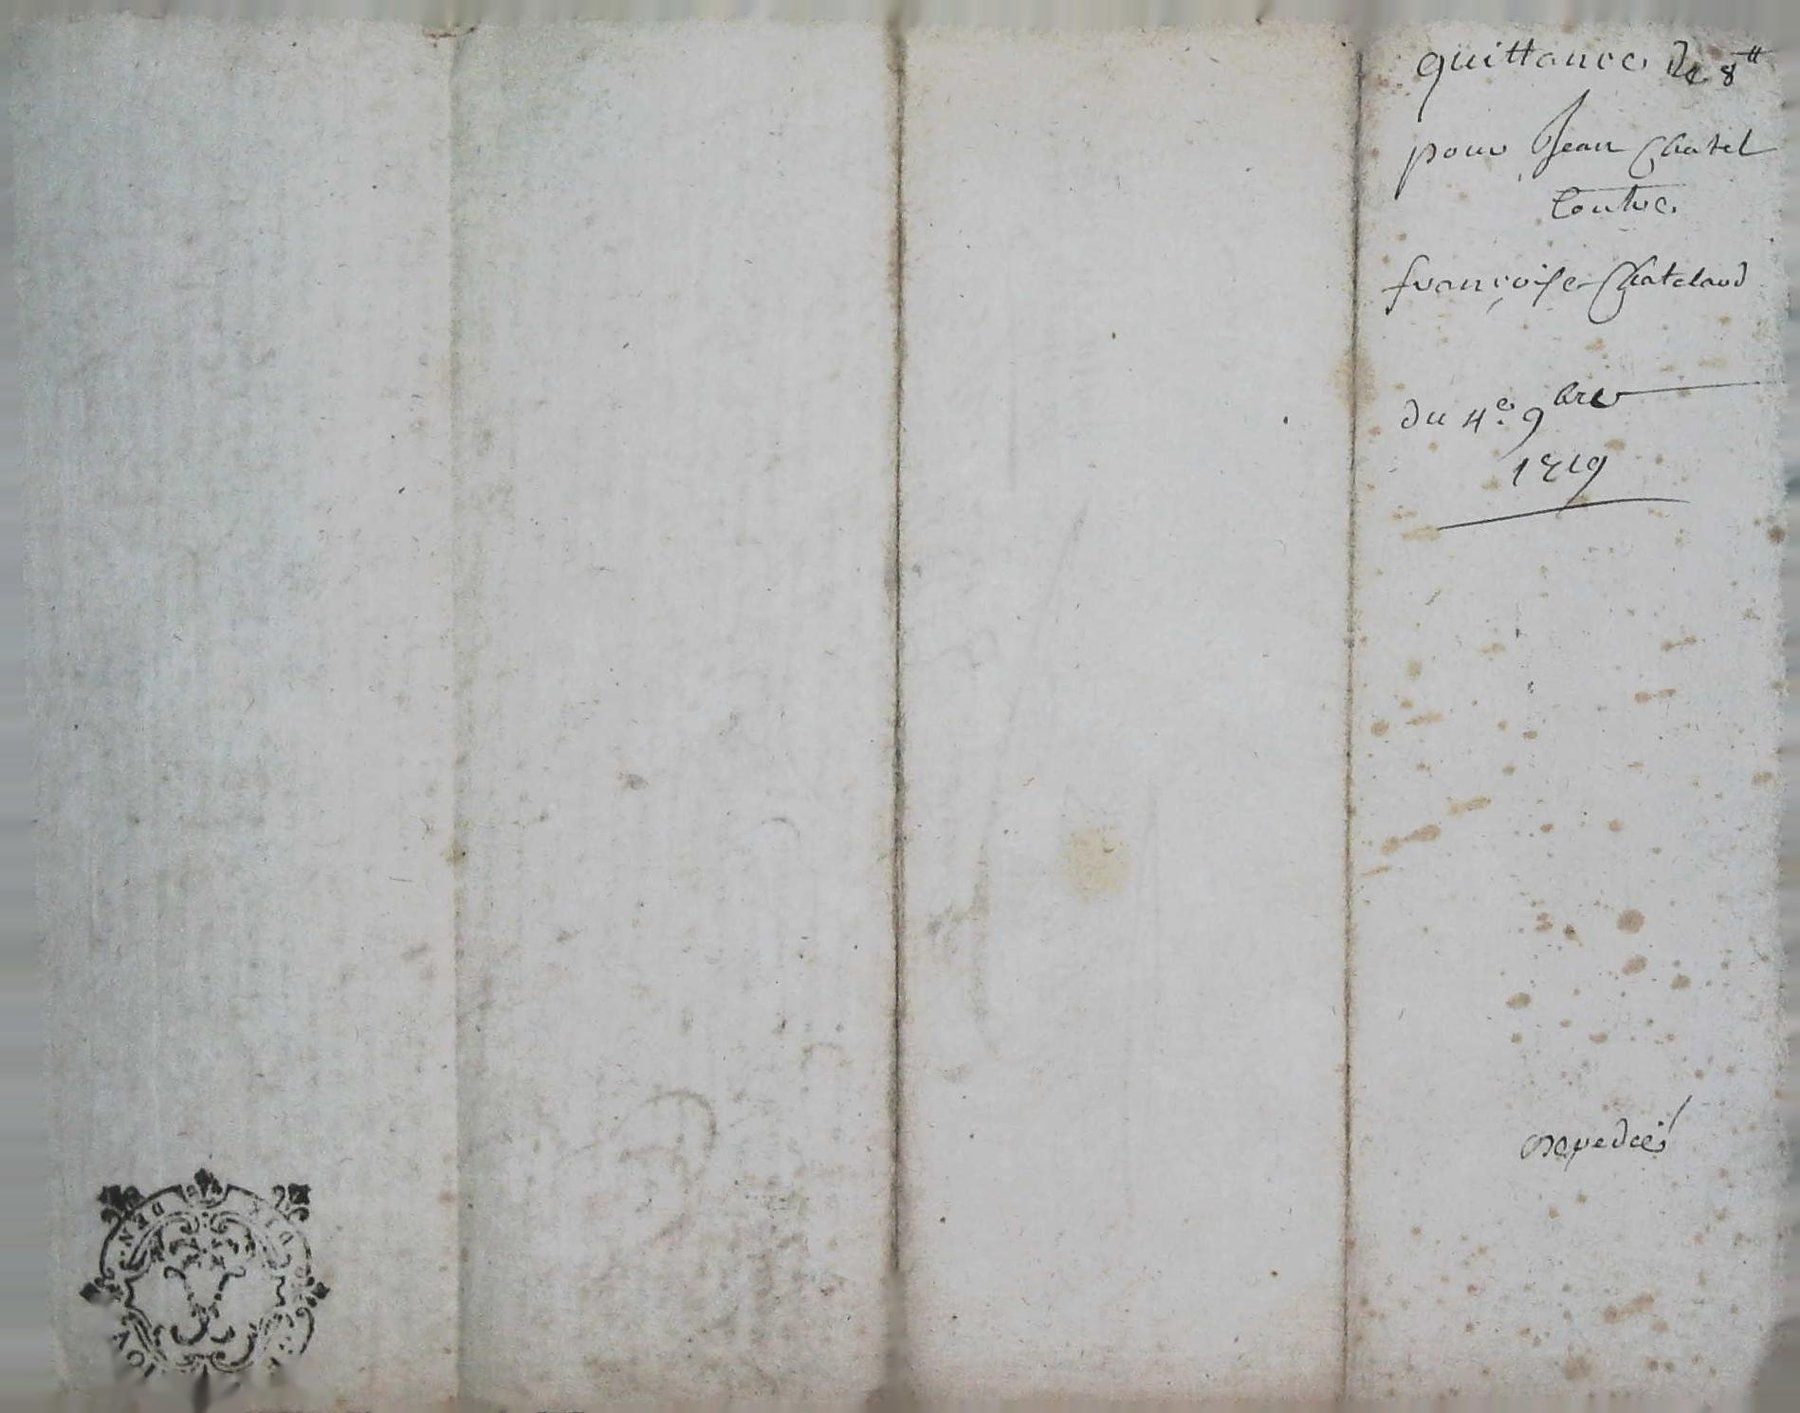 quittance de 8 ₶
pour Jean Chatel
Contre
françoise Chatelard
du 4e. 9bre
1719
expediée
DIX DEN.